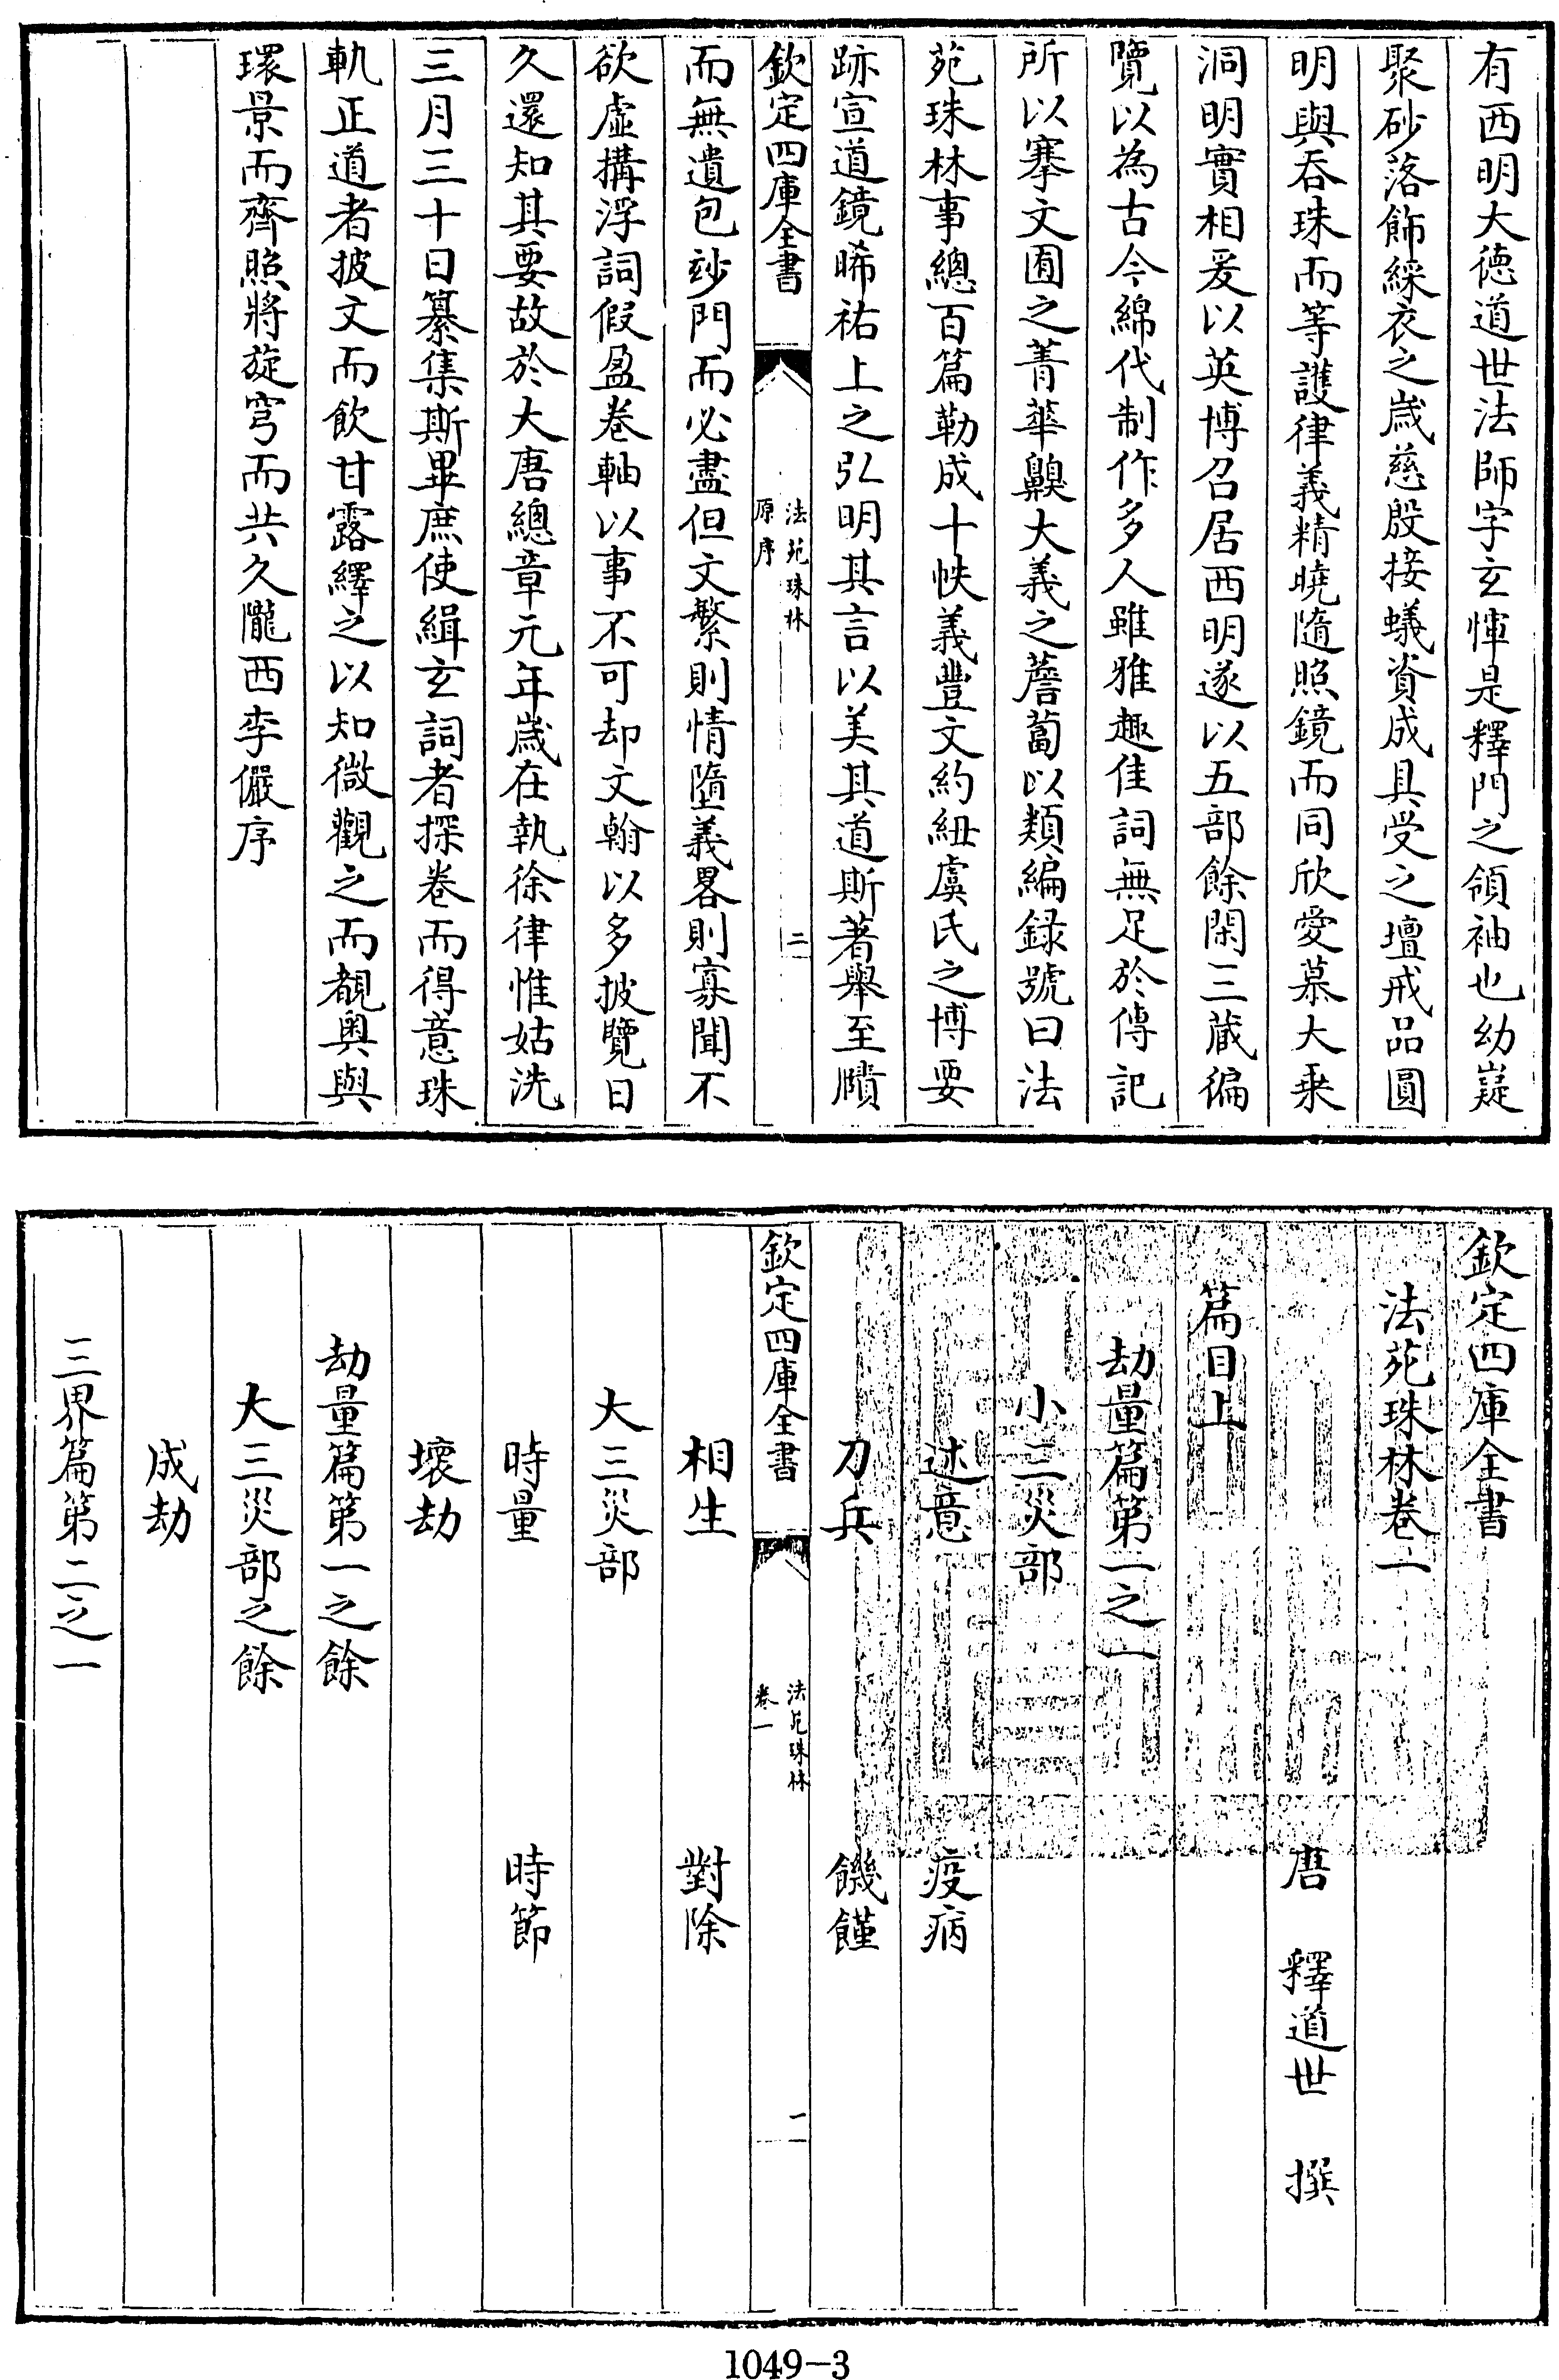 有西明大徳道世法師字玄惲是釋門之領袖也幼嶷
聚砂落飾綵衣之歳慈殷接蟻資成具受之壇戒品圓
明與吞珠而等護律義精曉隨照鏡而同欣愛慕大乗
洞明實相爰以英博召居西明遂以五部餘閑三蔵徧
覽以為古今綿代制作多人雖雅趣佳詞無足於傳記
所以搴文囿之菁華嗅大義之薝蔔以類編録號曰法
苑珠林事總百篇勒成十帙義豐文約紐虞氏之博要
跡宣道鏡晞祐上之弘明其言以美其道斯著舉至賾
欽定四庫全書
法苑珠林
原序
二
而無遺包玅門而必盡但文繁則情墮義畧則寡聞不
欲虛搆浮詞假盈卷軸以事不可却文翰以多披覽日
久還知其要故於大唐總章元年歳在執徐律惟姑洗
三月三十日纂集斯畢庶使緝玄詞者探卷而得意珠
軌正道者披文而飲甘露繹之以知微觀之而覩奥與
環景而齊照將旋穹而共久隴西李儼序
欽定四庫全書
法苑珠林卷一
唐 釋道世 撰
篇目上
劫量篇第一之一
小三災部
述意 疫病
刀兵 饑饉
欽定四庫全書
法苑珠林
卷一
一
相生 對除
大三災部
時量 時節
壞劫
劫量篇第一之餘
大三災部之餘
成劫
三界篇第二之一
1049-3